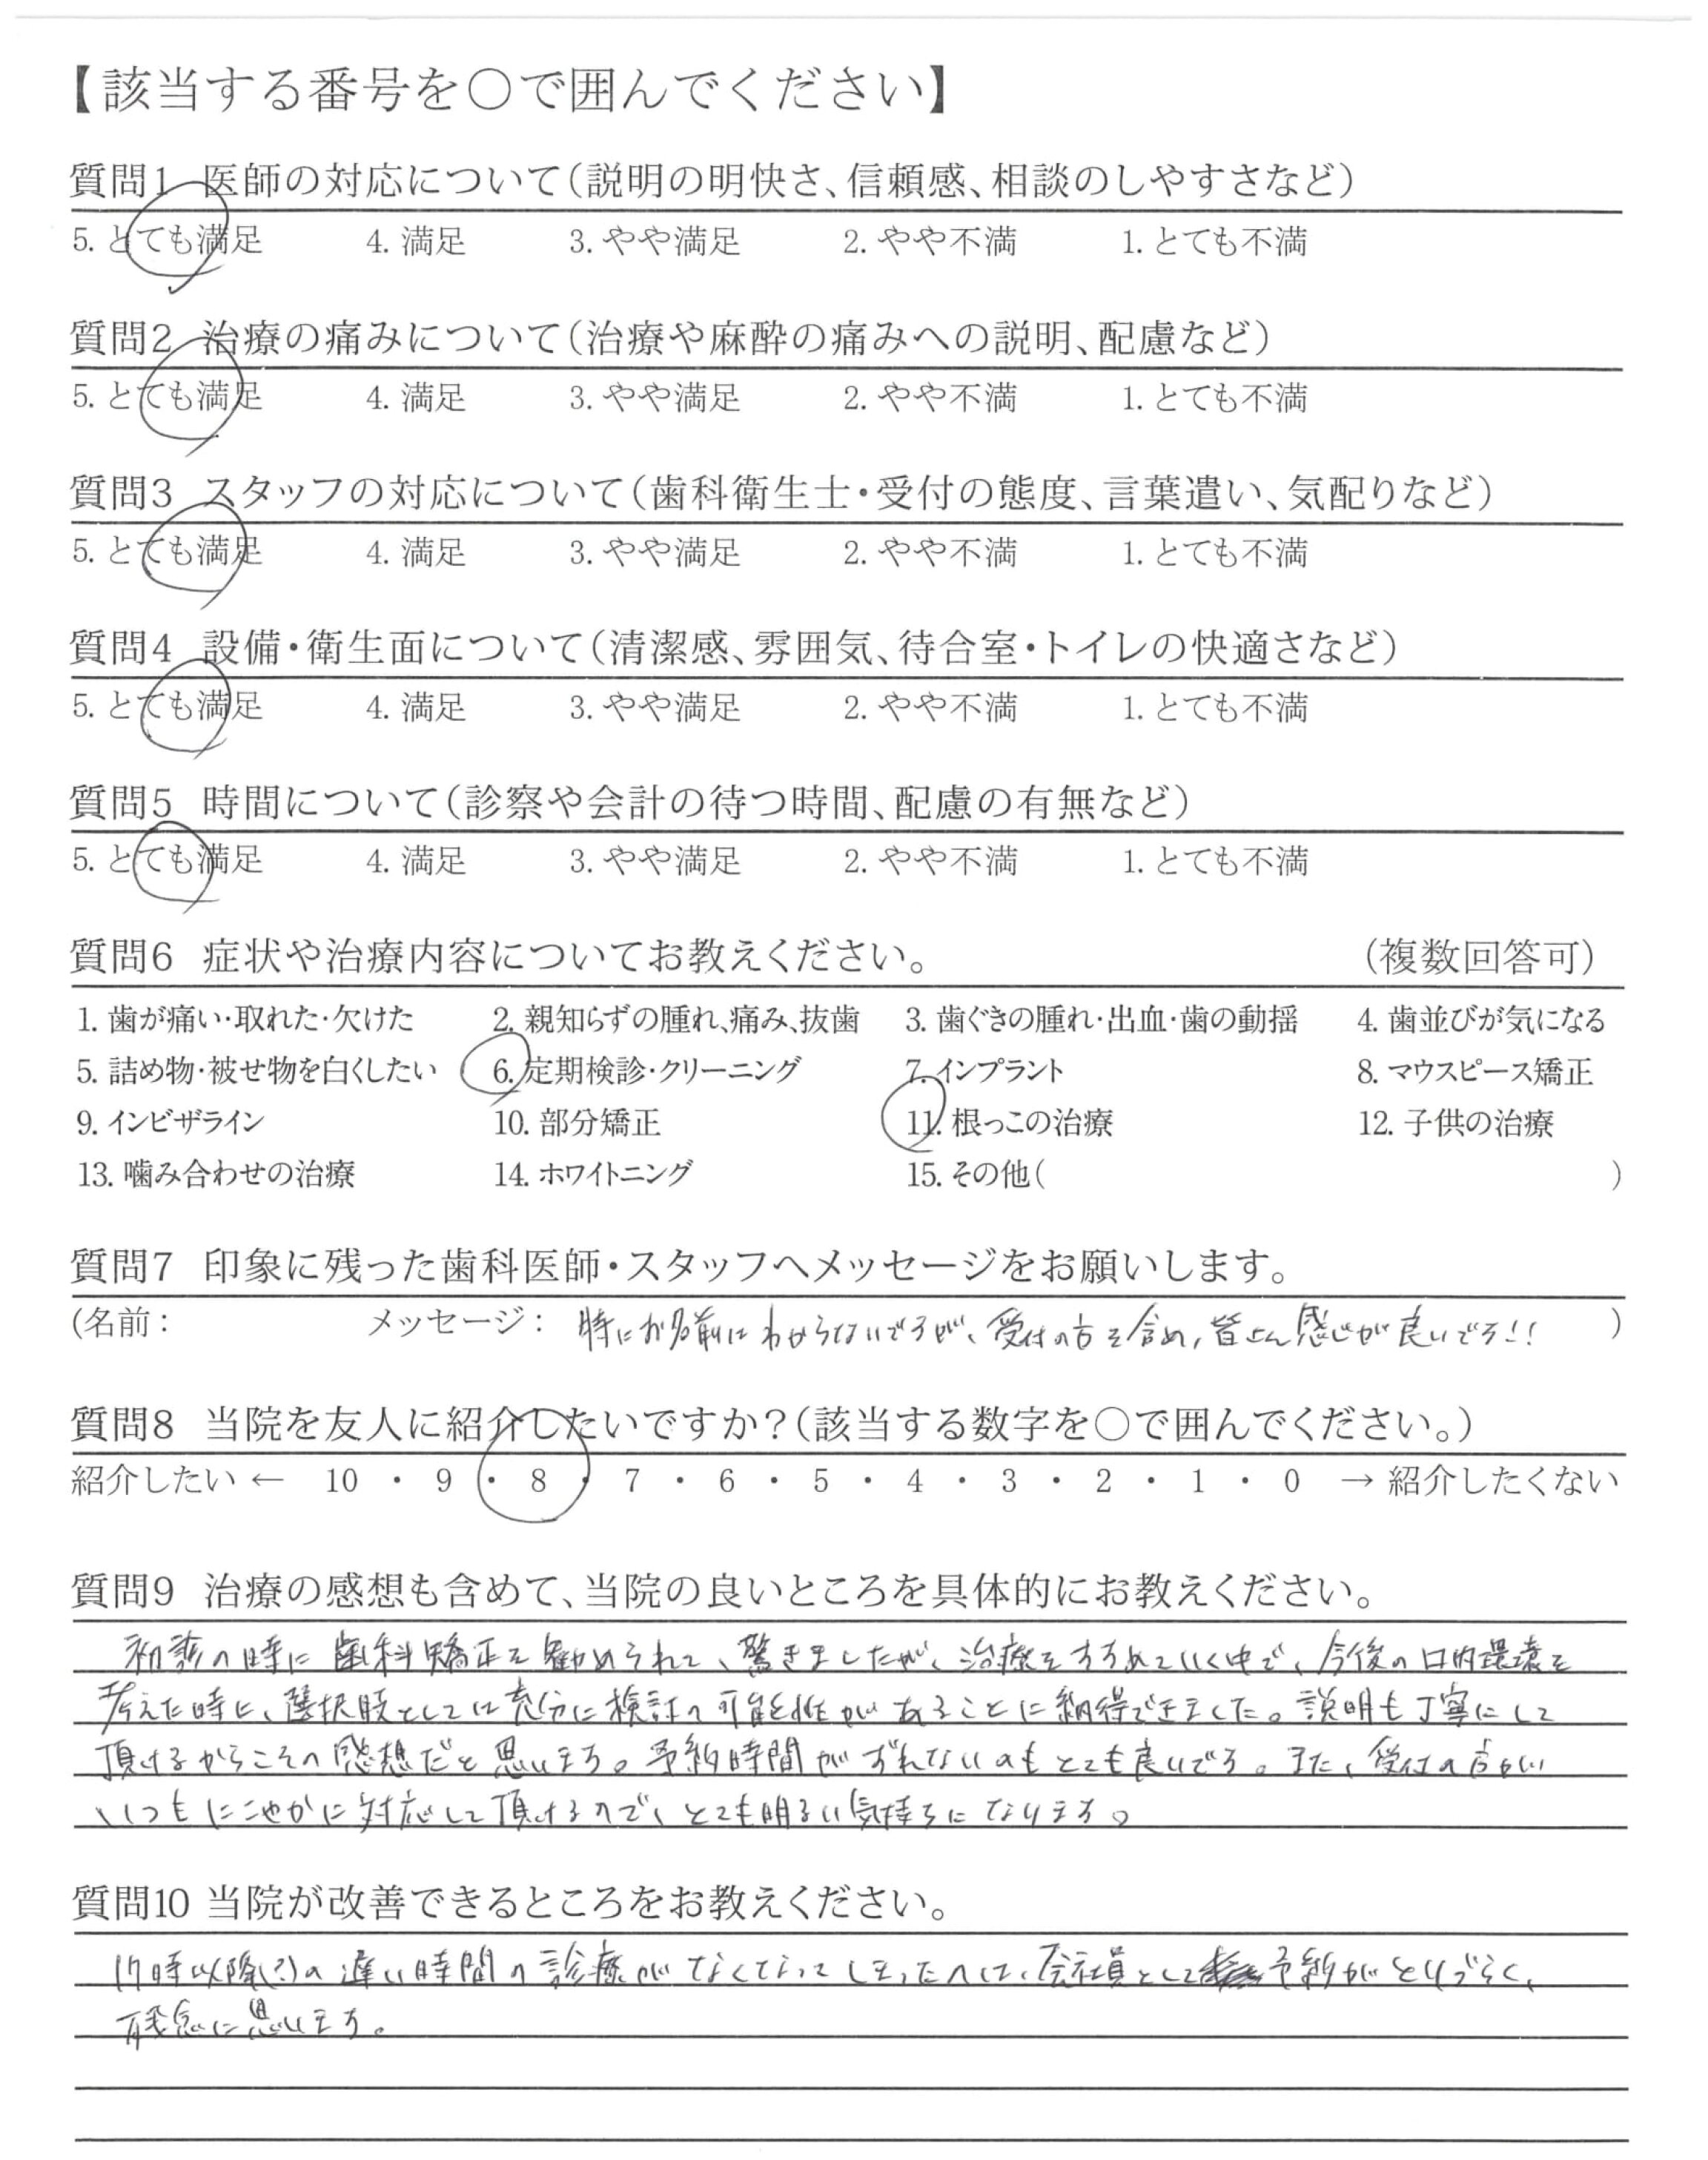 【該当する番号を〇で囲んでください】
質問1 医師の対応について(説明の明快さ、信頼感、相談のしやすさなど)
5. とても満足 4. 満足 3. やや満足 2. やや不満 1. とても不満
質問2 治療の痛みについて(治療や麻酔の痛みへの説明、配慮など)
5. とても満足 4. 満足 3. やや満足 2. やや不満 1. とても不満
質問3 スタッフの対応について(歯科衛生士・受付の態度、言葉遣い、気配りなど)
5. とても満足 4. 満足 3. やや満足 2. やや不満 1. とても不満
質問4 設備・衛生面について(清潔感、雰囲気、待合室・トイレの快適さなど)
5. とても満足 4. 満足 3. やや満足 2. やや不満 1. とても不満
質問5 時間について(診察や会計の待つ時間、配慮の有無など)
5. とても満足 4. 満足 3. やや満足 2. やや不満 1. とても不満
質問6 症状や治療内容についてお教えください。 (複数回答可)
1. 歯が痛い・取れた・欠けた 2. 親知らずの腫れ、痛み、抜歯 3. 歯ぐきの腫れ・出血・歯の動揺 4. 歯並びが気になる
5. 詰め物・被せ物を白くしたい 6. 定期検診・クリーニング 7. インプラント 8. マウスピース矯正
9. インビザライン 10. 部分矯正 11. 根っこの治療 12. 子供の治療
13. 噛み合わせの治療 14. ホワイトニング 15. その他( )
質問7 印象に残った歯科医師・スタッフへメッセージをお願いします。
(名前: メッセージ: 特にお名前はわからないですが、受付の方を含め、皆さん感じが良いです!! )
質問8 当院を友人に紹介したいですか?(該当する数字を〇で囲んでください。)
紹介したい ← 10 ・ 9 ・ 8 ・ 7 ・ 6 ・ 5 ・ 4 ・ 3 ・ 2 ・ 1 ・ 0 → 紹介したくない
質問9 治療の感想も含めて、当院の良いところを具体的にお教えください。
初診の時に歯科矯正を勧められて、驚きましたが、治療をすすめていく中で、今後の口内環境を
考えた時に、選択肢としては充分に検討の可能性があることに納得できました。説明も丁寧にして
頂けるからこその感想だと思います。予約時間がずれないのもとても良いです。また、受付の方がい
いつもにこやかに対応して頂けるので、とても明るい気持ちになります。
質問10 当院が改善できるところをお教えください。
17時以降(?)の遅い時間の診療がなくなってしまったのは、会社員として予約がとりづらく、
残念に思います。